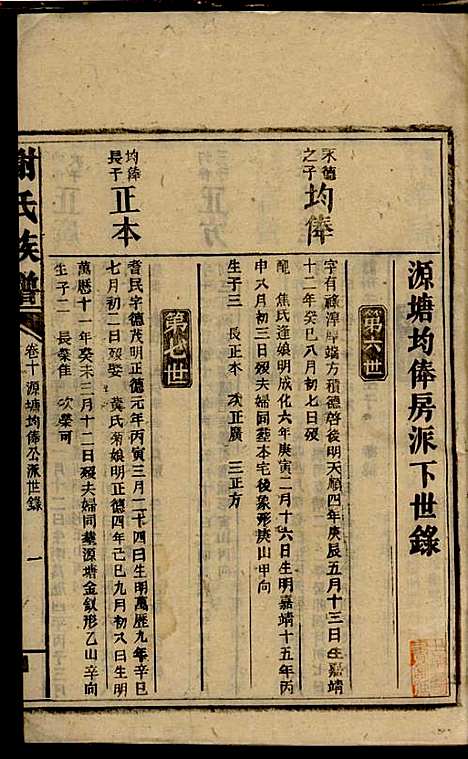 源塘均俸房派下世錄
第六世
永德之子 均俸
字有祿淳厚端方積德啓後明天順四年庚辰五月十三日生嘉靖
十二年癸巳八月初七日歿
配 焦氏逢娘明成化六年庚寅二月十六日生明嘉靖十五年丙
申八月初三日歿夫婦同塟本宅後象形庚山甲向
生子三 長正本 次正廣 三正方
第七世
均俸長子 正本
耆民字德茂明正德元年丙寅三月二十四日生明萬歷九年辛巳
七月初二日歿娶 龔氏菊娘明正德四年己巳九月初八日生明
萬歷十一年癸未三月十二日歿夫婦同塟源塘金釵形乙山辛向
生子二 長榮佳 次榮可
謝氏族譜
卷十 源塘均俸公派世錄
一